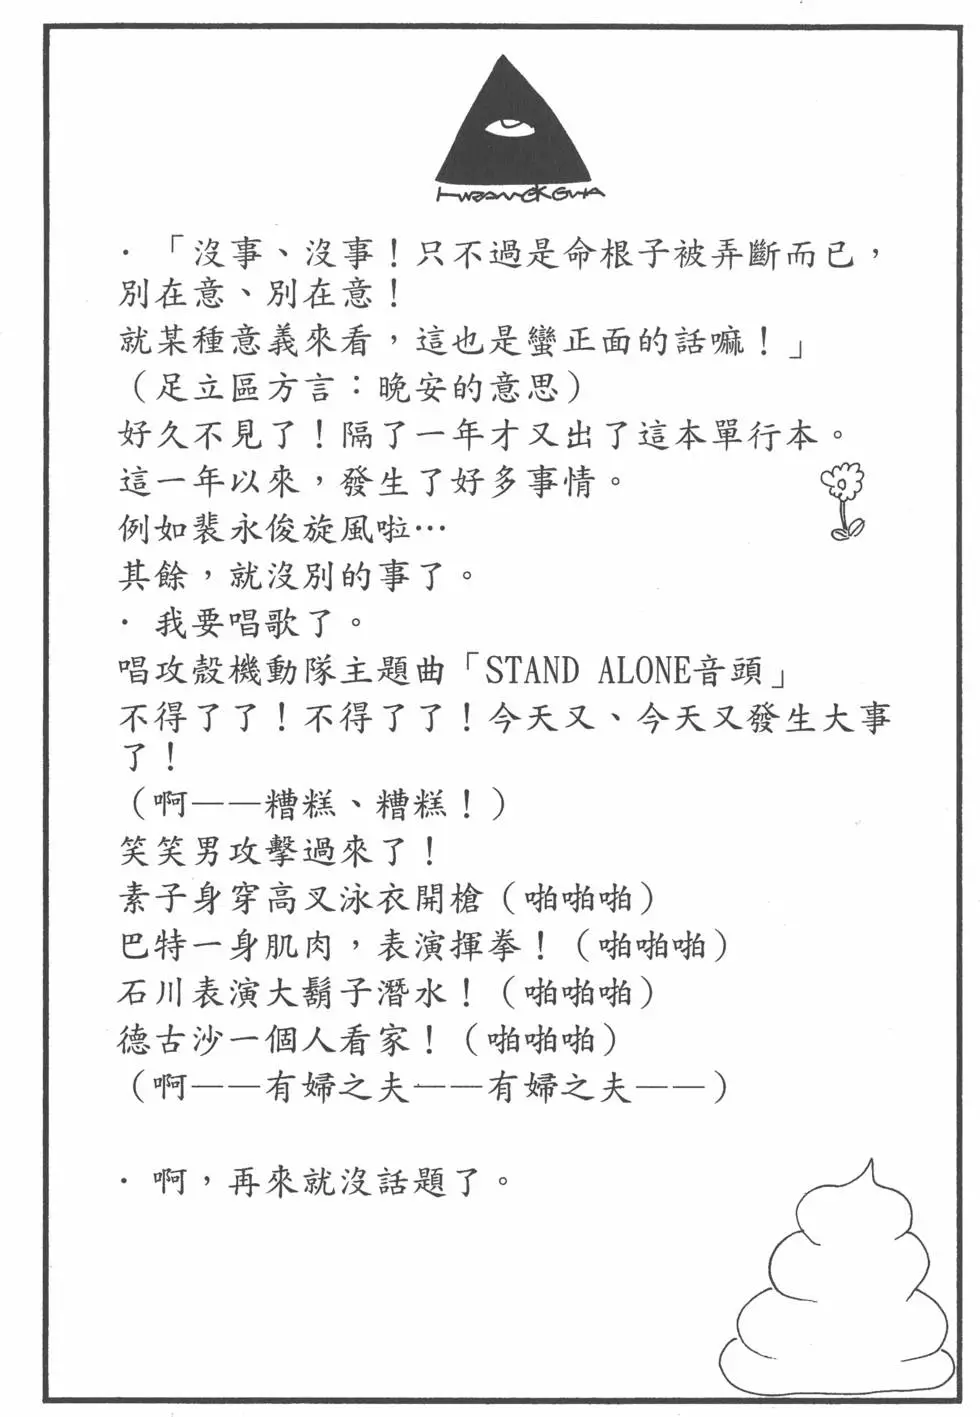 ·「沒事、沒事！只不過是命根子被弄斷而已，
別在意、別在意！
就某種意義來看，這也是蠻正面的話嘛！」
（足立區方言：晚安的意思）
好久不見了！隔了一年才又出了這本單行本。
這一年以來，發生了好多事情。
例如裴永俊旋風啦…
其餘，就沒別的事了。
·我要唱歌了。
唱攻殼機動隊主題曲「STAND ALONE音頭」
不得了了！不得了了！今天又、今天又發生大事
了！
（啊——糟糕、糟糕！）
笑笑男攻擊過來了！
素子身穿高叉泳衣開槍（啪啪啪）
巴特一身肌肉，表演揮拳！（啪啪啪）
石川表演大鬍子潛水！（啪啪啪）
德古沙一個人看家！（啪啪啪）
（啊——有婦之夫——有婦之夫——）
·啊，再來就沒話題了。